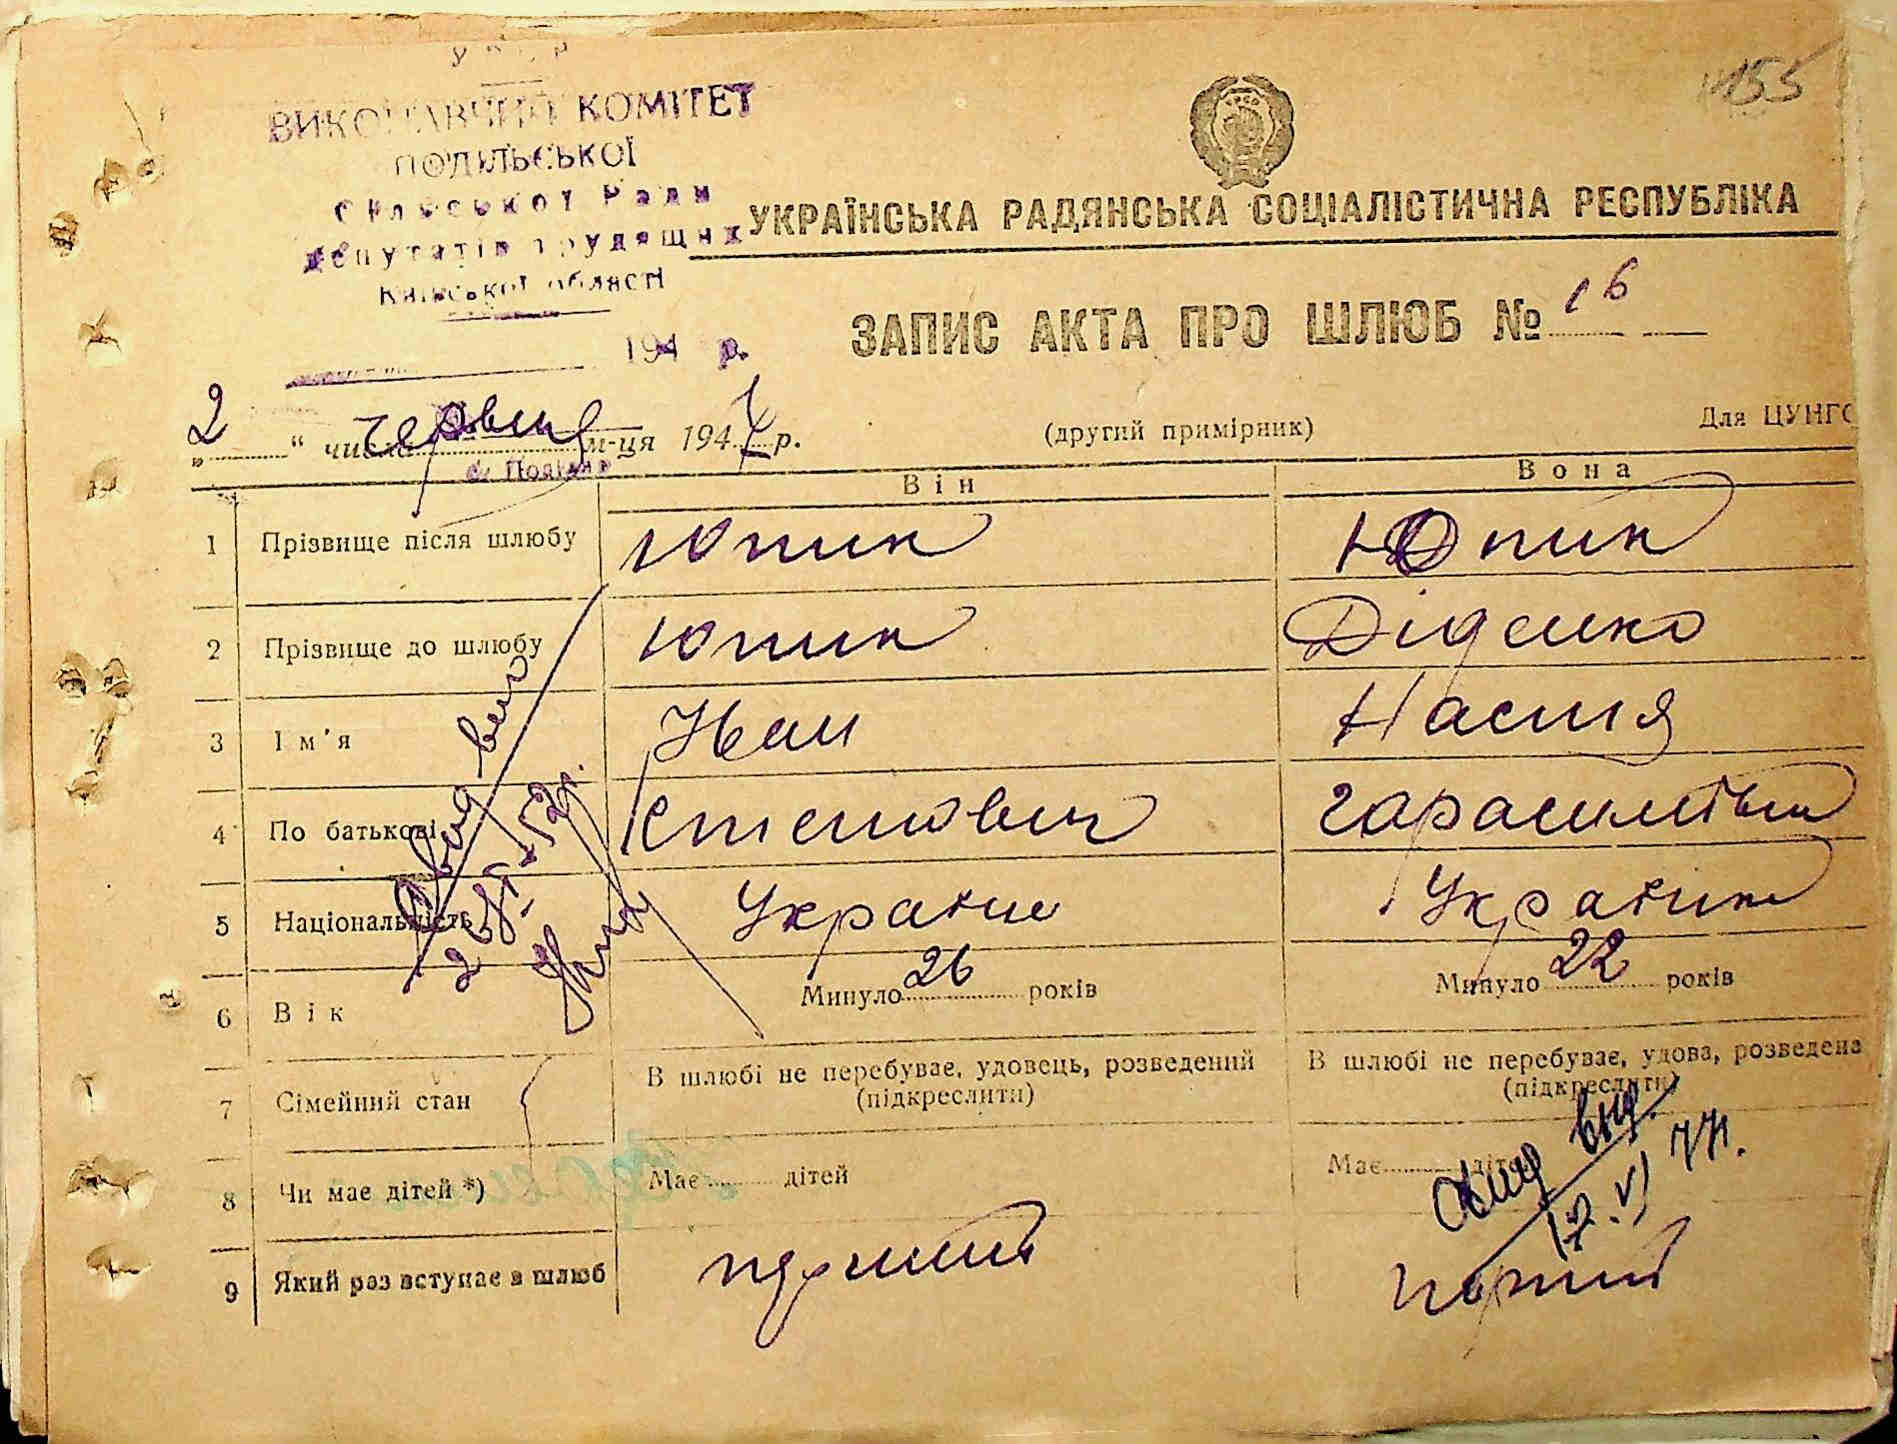 УКР
ВИКОНАВЧИЙ КОМІТЕТ
ПОДІЛЬСЬКОЇ
Сільської Ради
депутатів трудящих
Київської області
194 р.
155
УКРАЇНСЬКА РАДЯНСЬКА СОЦІАЛІСТИЧНА РЕСПУБЛІКА
ЗАПИС АКТА ПРО ШЛЮБ № 16
„2“ числа червня м-ця 1947 р.
(другий примірник)
Для ЦУНГО
Він
Вона
1 Прізвище після шлюбу Юпик Юпик
2 Прізвище до шлюбу Юпик Діденко
3 Ім'я Иван Настя
4 По батькові Степанович Гарасимівна
5 Національність Украінец Украінка
6 Вік Минуло 26 років Минуло 22 років
7 Сімейний стан В шлюбі не перебуває, удовець, розведений (підкреслити) В шлюбі не перебуває, удова, розведена (підкреслити)
8 Чи має дітей *) Має дітей Має дітей
17.VI 77.
9 Який раз вступає в шлюб перший перший